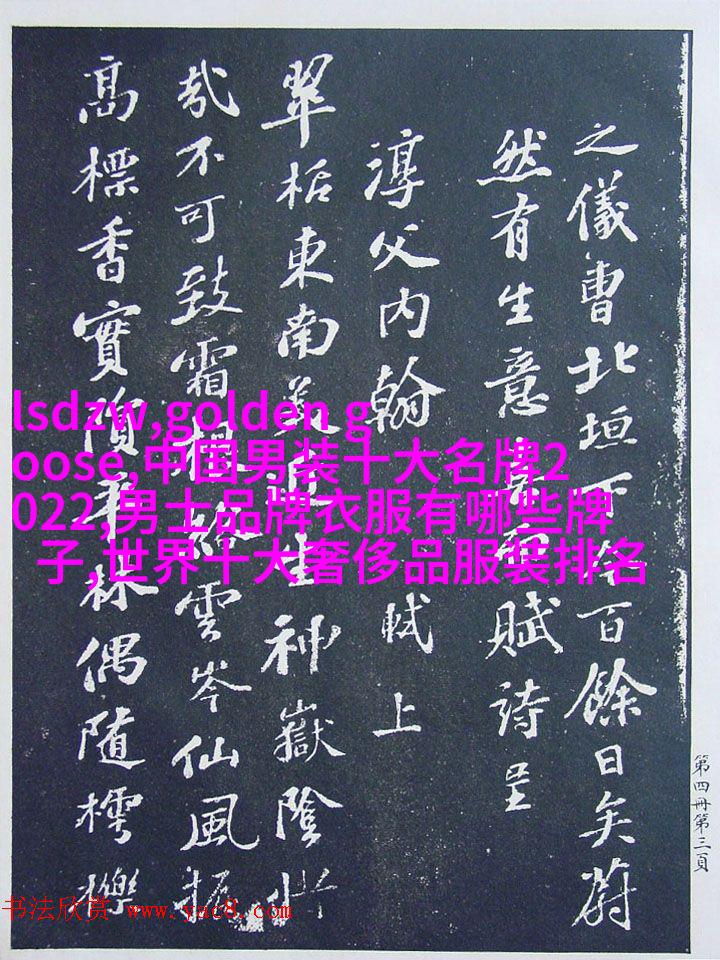 之儀曹北垣下今百餘日矣蔚
然有生意喜而賦詩呈
淳父內翰 軾上
翠栢東南美近生神嶽陰惜
哉不可致霜根絡雲岑仙風振
高標香實隕平林偶隨樗櫟
lsdzw,golden g
oose,中国男装十大名牌2
022,男士品牌衣服有哪些牌
子,世界十大奢侈品服装排名
第四冊第三頁
书法欣赏 www.yac8.com